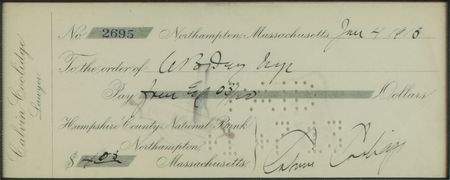 Calvin Coolidge
Lawyer
No. 2695 Northampton, Massachusetts, Jan 4 1913
To the order of
Pay Four & 03/100 Dollars
Hampshire County National Bank
Northampton,
$ 4.03 Massachusetts.
Calvin Coolidge